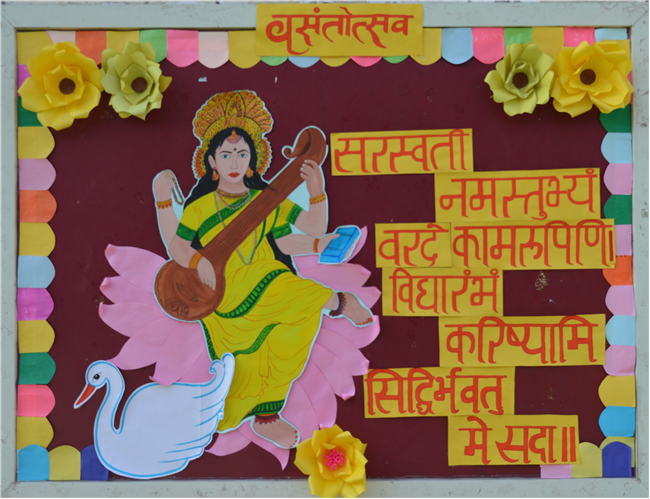 वसंतोत्सव
सरस्वती
नमस्तुभ्यं
वरदे कामरुपिणि।
विद्यारंभं
करिष्यामि
सिद्धिर्भवतु
मे सदा॥